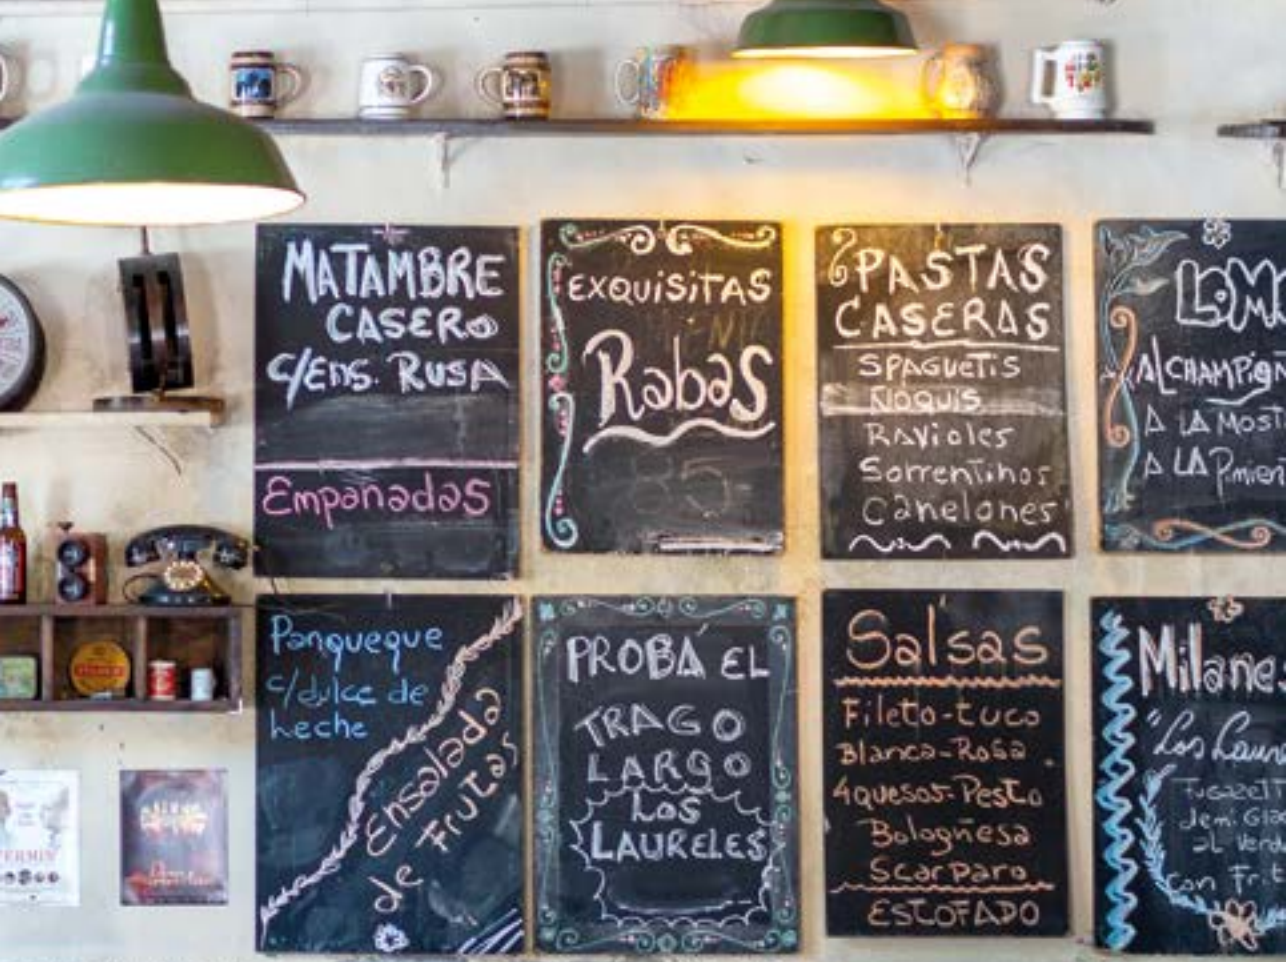 MATAMBRE
CASERO
C/ENS. RUSA
Empanadas
EXQUISITAS
Rabas
85
PASTAS
CASERAS
SPAGUETIS
ÑOQUIS
Ravioles
Sorrentinos
Canelones
AL CHAMPIGN
A LA MOST
A LA Pimien
Panqueque
c/dulce de
leche
Ensalada
de Frutas
PROBÁ EL
TRAGO
LARGO
LOS
LAURELES
Salsas
Fileto-tuco
Blanca-Rosa
4quesos-Pesto
Bologñesa
Scarparo
ESTOFADO
Milane
"Los Laure
con Frit